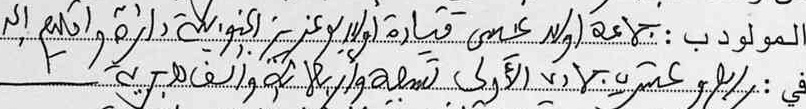 المولود ب : جماعة اولاد عيسى قيادة اولاد بوعزيز الجنوبية دائرة واقليم الج
في : رابع عشر جمادى الأولى تسعة وأربعمائة وألف هجرية